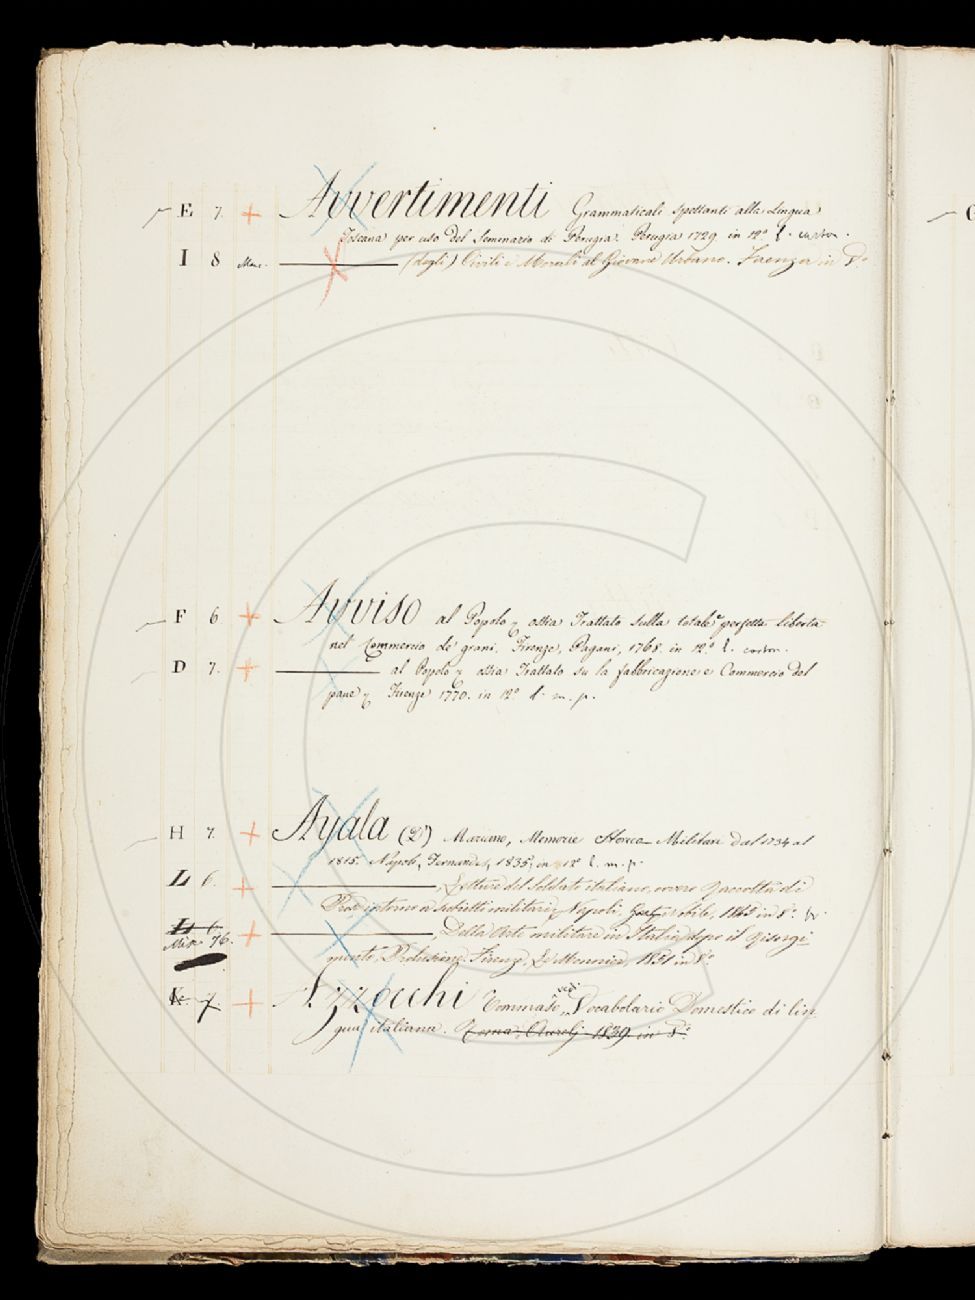 E 7. Avvertimenti Grammaticali spettanti alla Lingua
Toscana per uso del Seminario di Perugia. Perugia 1729 in 12º l. carton.
I 8 (degli) Civili e Morali al Giovane Urbano. Faenza in 8.º
F 6 Avviso al Popolo, ossia Trattato sulla totale e perfetta libertà
nel Commercio de' grani. Firenze, Pagani, 1768. in 12º l. carton.
D 7. al Popolo, ossia Trattato su la fabbricazione e Commercio del
pane, Firenze 1770. in 12º l. m. p.
H 7. Ayala (D') Mariano, Memorie Storico Militari dal 1734 al
1815. Napoli, Fernandes, 1835, in 12º l. m. p.
L 6. , Letture del Soldato italiano, ovvero Raccolta di
Prose intorno a subietti militari, Napoli, in 8º
L 6.
Mis. 76. , Dell'Arte militare in Italia dopo il Risorgi-
mento, Prolusione. Firenze, Le Monnier, 1851 in 8º
K 7. Azzocchi Tommaso, vedi Vocabolario Domestico di lin
gua italiana. Roma, Aurelj 1839. in 8º